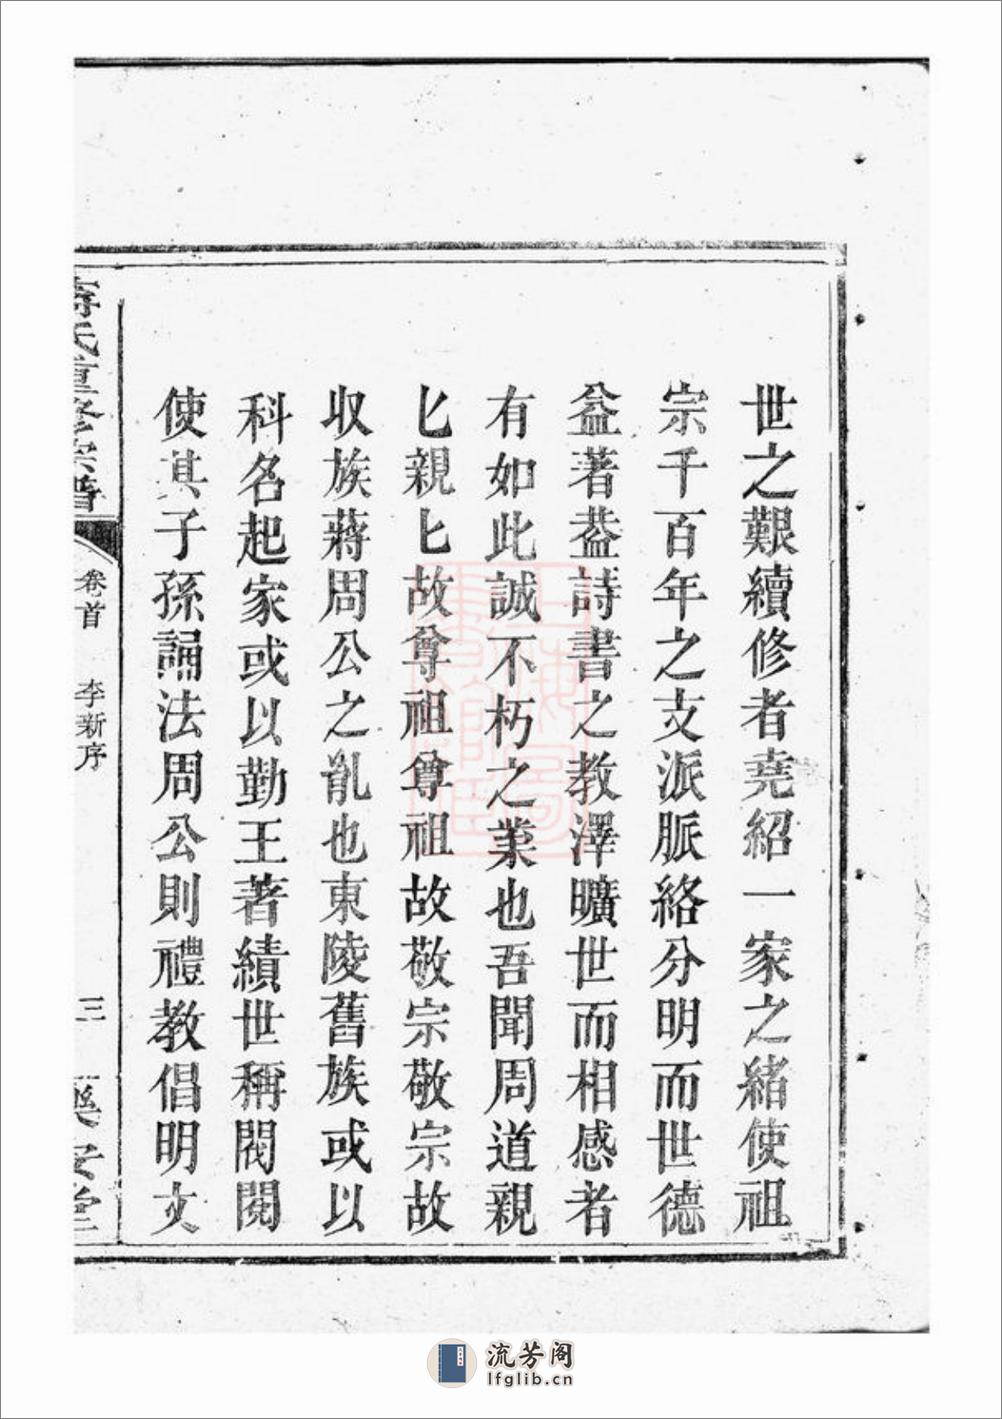 世之艱續修者堯紹一家之緒使祖
宗千百年之支派脈絡分明而世德
益著葢詩書之教澤曠世而相感者
有如此誠不朽之業也吾聞周道親
匕親匕故尊祖尊祖故敬宗敬宗故
収族蔣周公之胤也東陵舊族或以
科名起家或以勤王著績世稱閥閱
使其子孫誦法周公則禮教倡明文
氏重修宗譜
卷首
李新序
三
樂安堂
流芳阁
lfglib.cn